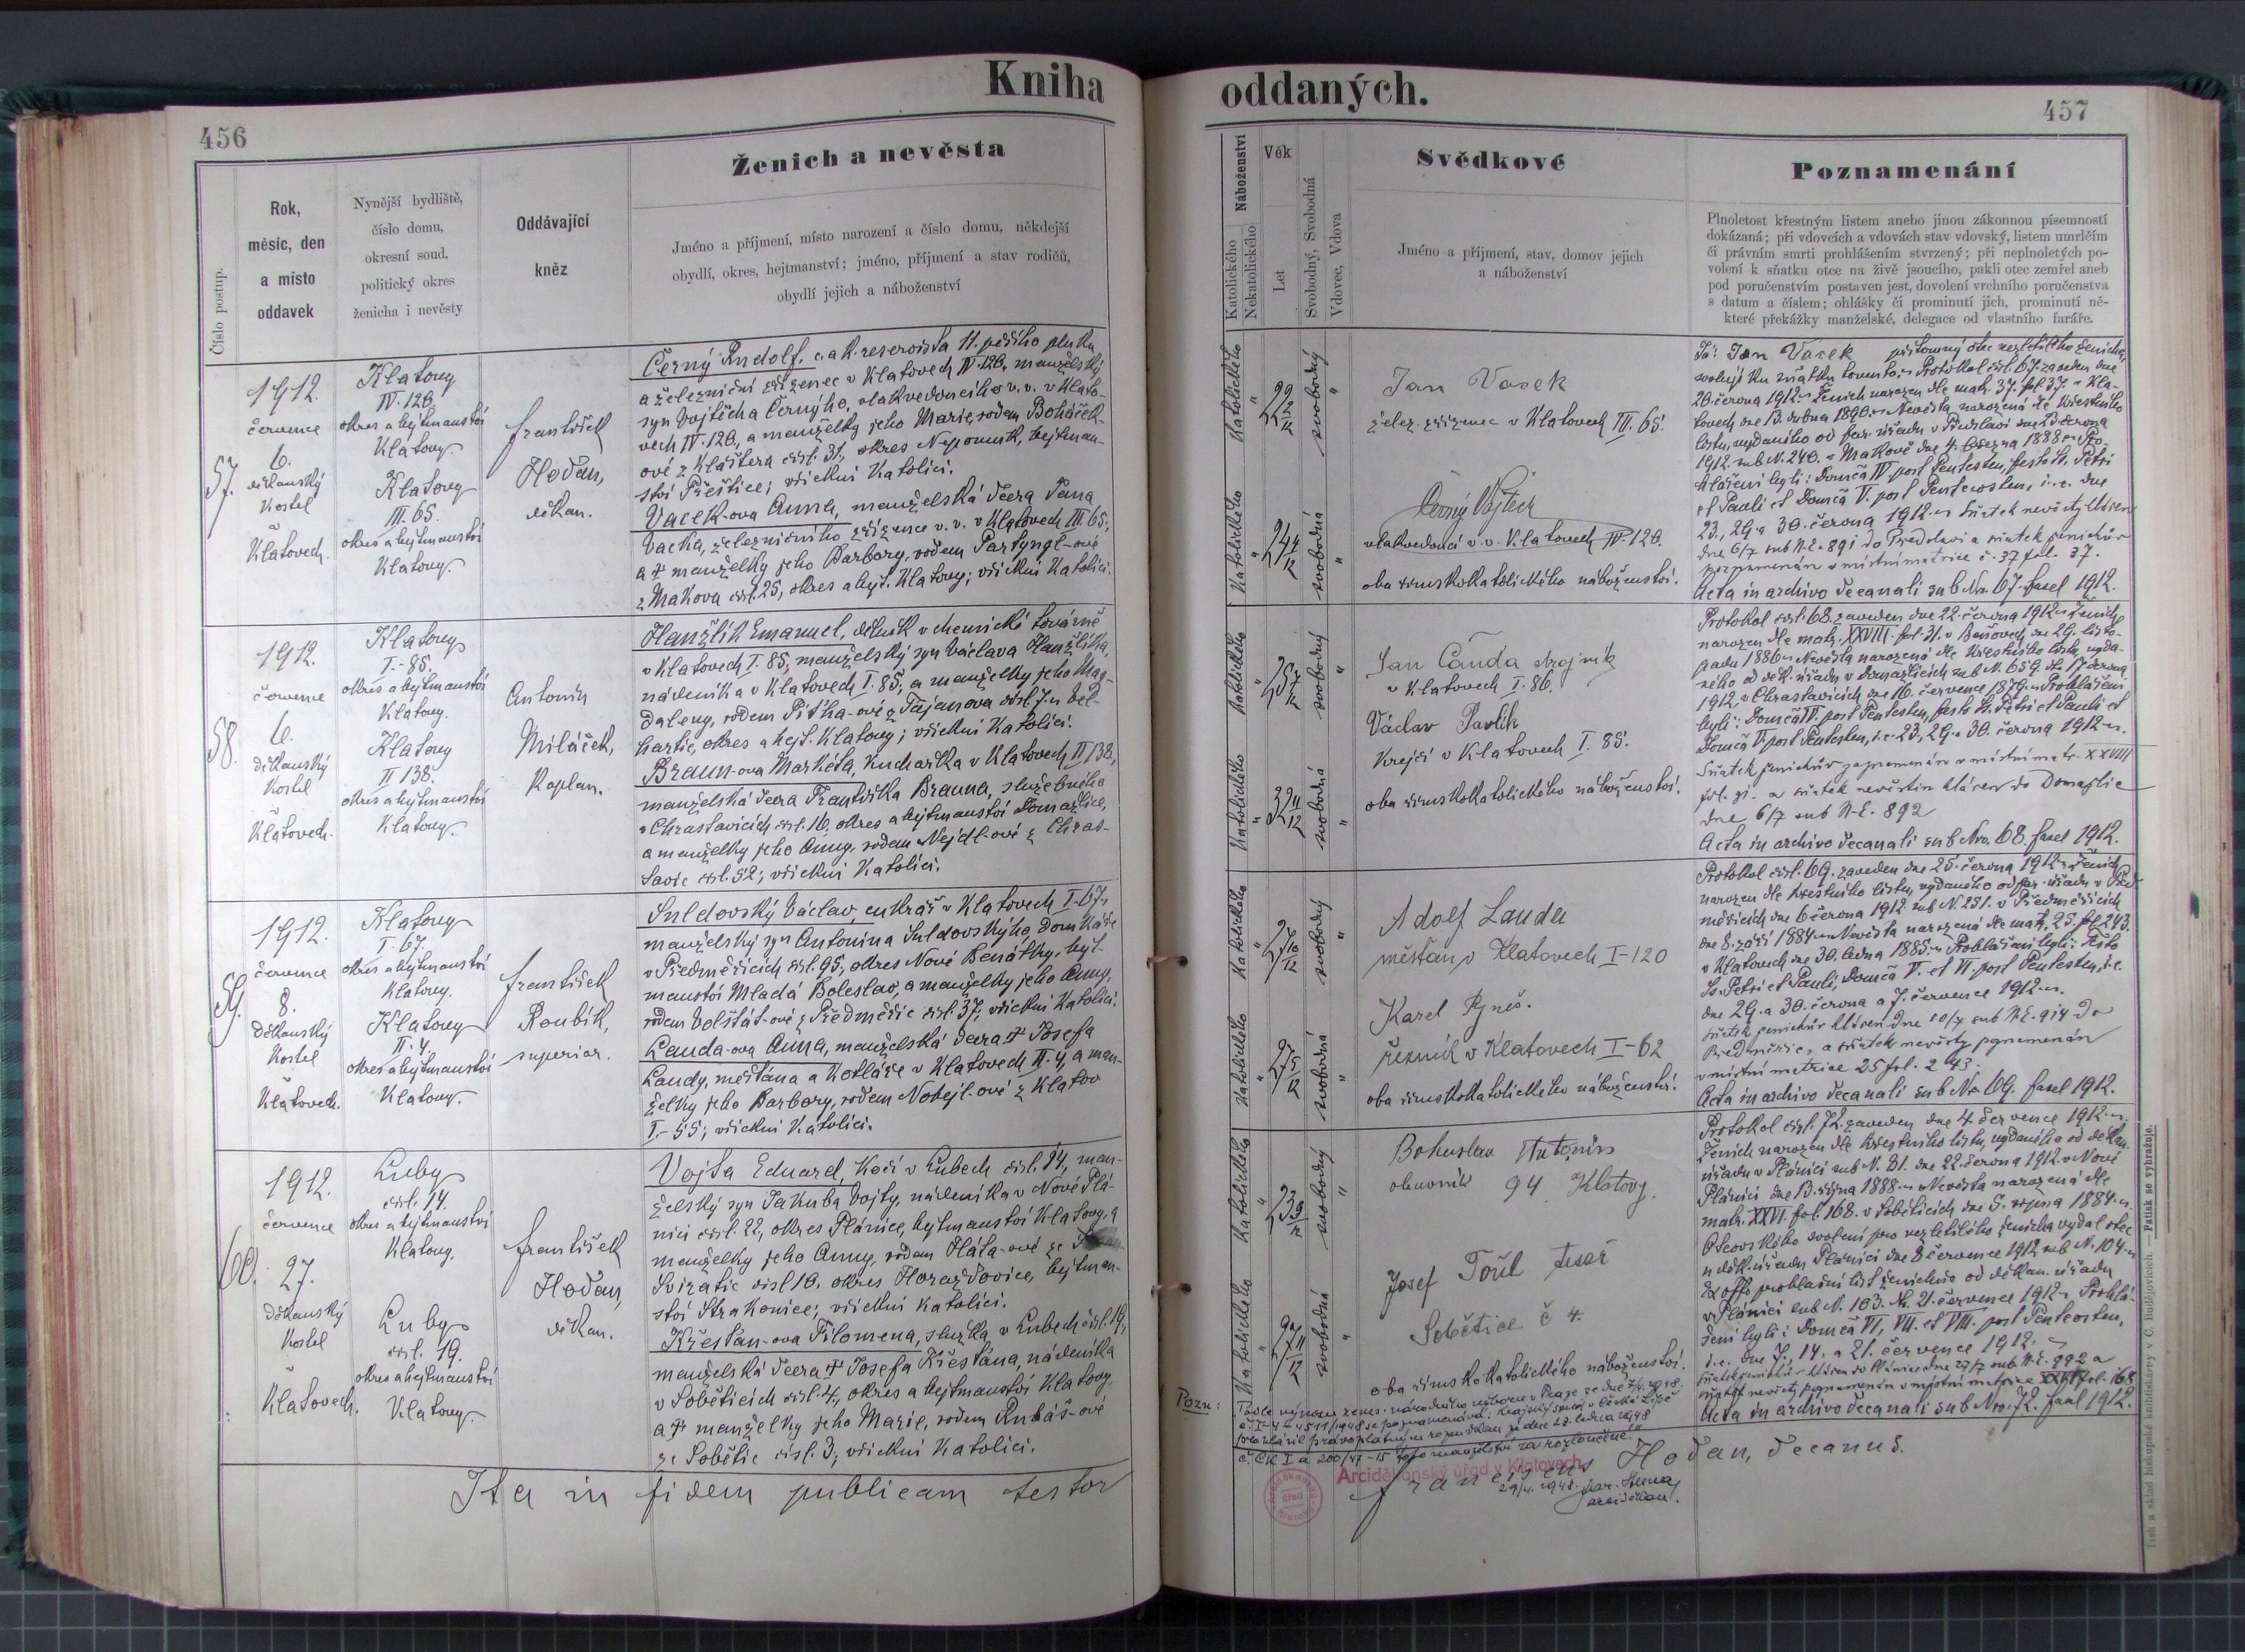 Kniha oddaných.
456
457
Číslo postup.
Rok,
měsíc, den
a místo
oddavek
Nynější bydliště,
číslo domu,
okresní soud,
politický okres
ženicha i nevěsty
Oddávající
kněz
Ženich a nevěsta
Jméno a příjmení, místo narození a číslo domu, někdejší
obydlí, okres, hejtmanství; jméno, příjmení a stav rodičů,
obydlí jejich a náboženství
Náboženství
Katolického
Nekatolického
Věk
Let
Svobodný, Svobodná
Vdovec, Vdova
Svědkové
Jméno a příjmení, stav, domov jejich
a náboženství
Poznamenání
Plnoletost křestným listem anebo jinou zákonnou písemností
dokázaná; při vdovcích a vdovách stav vdovský, listem umrlčím
či právním smrti prohlášením stvrzený; při neplnoletých po-
volení k sňatku otce na živě jsoucího, pakli otec zemřel aneb
pod poručenstvím postaven jest, dovolení vrchního poručenstva
s datum a číslem; ohlášky či prominutí jich, prominutí ně-
které překážky manželské, delegace od vlastního faráře.
57.
1912.
července
6.
děkanský
kostel
v
Klatovech.
Klatovy
IV-120.
okres a hejtmanství
Klatovy.
Klatovy
III. 65.
okres a hejtmanství
Klatovy.
František
Hoďan,
děkan.
Černý Rudolf, c. a k. reservista 11. pěšího pluku
a železniční zřízenec v Klatovech IV-120, manželský
syn Vojtěcha Černýho, vlakvedoucího v. v. v Klato-
vech IV. 120, a manželky jeho Marie, rodem Boháček-
ové z Kláštera čísl. 31, okres Nepomuk, hejtman-
ství Přeštice; všickni katolíci.
Vacek-ova Anna, manželská dcera Jana
Vacka, železničního zřízence v. v. v Klatovech III 65.,
a † manželky jeho Barbory, rodem Partyngl-ové
z Makova čísl. 25, okres a hejt. Klatovy; všickni katolíci.
Katolického
svobodný
Katolického
svobodná
Jan Vacek
želez. zřízenec v Klatovech III. 65.
Černý Vojtěch
vlakvedoucí v. v. Klatovech IV-120.
oba římskokatolického náboženství.
Já: Jan Vacek přítomný otec nezletilého ženicha,
svoluji ku sňatku tomuto. Protokol čísl. 67. zaveden dne
20. června 1912. Ženich narozen dle matr. 37. fol. 37. v Kla-
tovech dne 13. dubna 1890. Nevěsta narozená dle křestního
listu, vydaného od far. úřadu v Předslavi dne 13. června
1912. sub N. 240. v Makově dne 4. března 1888. Pro-
hlášení byli: Domca IV post Pentecosten, festo Ss. Petri
et Pauli et Domca V. post Pentecosten, i. e. dne
23., 29. a 30. června 1912. Sňatek nevěsty hlášen
dne 6/7 sub N. E. 891 do Předslavi a sňatek ženichův
poznamenán v místní matrice č. 37 fol. 37.
Acta in archivo decanali sub Nro. 67. fasel 1912.
58.
1912.
července
6.
děkanský
kostel
v
Klatovech.
Klatovy
I.- 85.
okres a hejtmanství
Klatovy.
Klatovy
II 138.
okres a hejtmanství
Klatovy.
Antonín
Miláček,
kaplan.
Hanžlík Emanuel, dělník v chemické továrně
v Klatovech I. 85, manželský syn Václava Hanžlíka,
nádeníka v Klatovech I. 85, a manželky jeho Mag-
daleny, rodem Pitha-ové z Tajanova čísl. 7. u Vel-
hartic, okres a hejt. Klatovy; všickni katolíci.
Braun-ova Markéta, kuchařka v Klatovech II 138,
manželská dcera Františka Brauna, služebného
v Chrastavicích čísl. 16, okres a hejtmanství Domažlice,
a manželky jeho Anny, rodem Nejdl-ové z Chras-
tavic čísl. 52; všickni katolíci.
Katolického
svobodný
Katolického
svobodná
Jan Čanda strojník
v Klatovech I. 86.
Václav Pavlík
krejčí v Klatovech I. 85.
oba římskokatolického náboženství.
Protokol čísl. 68. zaveden dne 22. června 1912. Ženich
narozen dle matr. XXVIII. fol. 31. v Beňovech dne 29. listo-
padu 1886. Nevěsta narozená dle křestního listu, vyda-
ného od děk. úřadu v Domažlicích sub N. 659. dto 17 června
1912 v Chrastavicích dne 16. července 1879. Prohlášeni
byli: Domca IV. post Pentecosten, festo Ss. Petri et Pauli et
Domca V post Pentecosten, i. e. 23., 29. a 30. června 1912.
Sňatek ženichův poznamenán v místní matr. XXVIII
fol. 31. a sňatek nevěstin hlášen do Domažlic
dne 6/7 sub N. E. 892
Acta in archivo decanali sub Nro. 68. fasel 1912.
59.
1912.
července
8.
děkanský
kostel
v
Klatovech.
Klatovy
I. 67.
okres a hejtmanství
Klatovy.
Klatovy
II. 4.
okres a hejtmanství
Klatovy.
František
Roubík,
superior.
Šuldovský Václav cukrář v Klatovech I-67.,
manželský syn Antonína Šuldovskýho, domkáře
v Předměřicích čísl. 95, okres Nové Benátky, hejt-
manství Mladá Boleslav, a manželky jeho Anny,
rodem Volštát-ové z Předměřic čísl. 37, všickni katolíci.
Lauda-ova Anna, manželská dcera † Josefa
Laudy, měšťana a kotláře v Klatovech II. 4, a man-
želky jeho Barbory, rodem Nobejl-ové z Klatov
I.- 55; všickni katolíci.
Katolického
svobodný
Katolického
svobodná
Adolf Lauda
měšťan v Klatovech I-120
Karel Ryneš.
řezník v Klatovech I-62
oba římskokatolického náboženství.
Protokol čísl. 69. zaveden dne 25. června 1912. Ženich
narozen dle křestního listu, vydaného od far. úřadu v Před-
měřicích dne 6 června 1912. sub N. 251. v Předměřicích
dne 8. září 1884. Nevěsta narozená dle matr. 25. fol. 243.
v Klatovech dne 30. ledna 1885. Prohlášeni byli: Festo
Ss. Petri et Pauli, Domca V. et VI. post Pentecosten, i. e.
dne 29. a 30. června a 7. července 1912.
sňatek ženichův hlášen dne 10/7 sub N. E. 914 do
Předměřic, a sňatek nevěsty poznamenán
v místní matrice 25 fol. 243.
Acta in archivo decanali sub No. 69. fasel 1912.
60.
1912.
července
27.
děkanský
kostel
v
Klatovech.
Luby
čísl. 14.
okres a hejtmanství
Klatovy.
Luby
čísl. 19.
okres a hejtmanství
Klatovy.
František
Hoďan,
děkan.
Vojta Eduard, kočí v Lubech čísl. 14, man-
želský syn Jakuba Vojty, nádeníka v Nové Plá-
nici čísl. 22, okres Plánice, hejtmanství Klatovy, a
manželky jeho Anny, rodem Háta-ové ze
Sviratic čísl 10. okres Horažďovice, hejtman-
ství Strakonice; všickni katolíci.
Křesťan-ova Filomena, služka v Lubech čísl. 19,
manželská dcera † Josefa Křesťana, nádeníka
v Soběticích čísl. 4, okres a hejtmanství Klatovy
a † manželky jeho Marie, rodem Rubáš-ové
ze Sobětic čísl. 3; všickni katolíci.
Katolického
svobodný
Katolického
svobodná
Bohuslav Antonín
obuvník 94 Klatovy.
Josef Toušl tesař
Sobětice č 4.
oba římskokatolického náboženství.
Protokol čísl. 72. zaveden dne 4. července 1912.
Ženich narozen dle křestního listu, vydaného od děkan.
úřadu v Plánici sub N. 81. dne 22. června 1912. v Nové
Plánici dne 13. října 1888. Nevěsta narozená dle
matr. XXVI. fol. 168. v Soběticích dne 5. října 1884.
Otcovského svolení pro nezletilého ženicha vydal otec
u děk. úřadu Plánici dne 8 července 1912 sub N. 104.
Ex offo prohlašní list ženichův od děkan. úřadu
v Plánici sub N. 103. dto. 21. července 1912. Prohlá-
šeni byli: Domca VI, VII. et VIII. post Pentecosten,
i. e. dne 7., 14. a 21. července 1912.
sňatek ženichův hlášen do Plánice dne 27/7 sub N. E. 992 a
sňatek nevěsty poznamenán v místní matrice XXVI fol. 168
Acta in archivo decanali sub Nro. 72. fasel 1912.
Pozn:
Podle výnosu zems. národního výboru v Praze ze dne 7/4. 1948
se poznamenává: Krajský soud v České Lípě
prohlásil právoplatným rozsudkem ze dne 23. ledna 1948
č. Ck I a 200/47-15 toto manželství za rozloučené.
Arciděkanský úřad v Klatovech
29/4. 1948
arciděkan.
Ita in fidem publicam testor
Franciscus Hoďan, decanus.
Tisk a sklad biskupské knihtiskárny v Č. Budějovicích. — Patisk se vyhražuje.